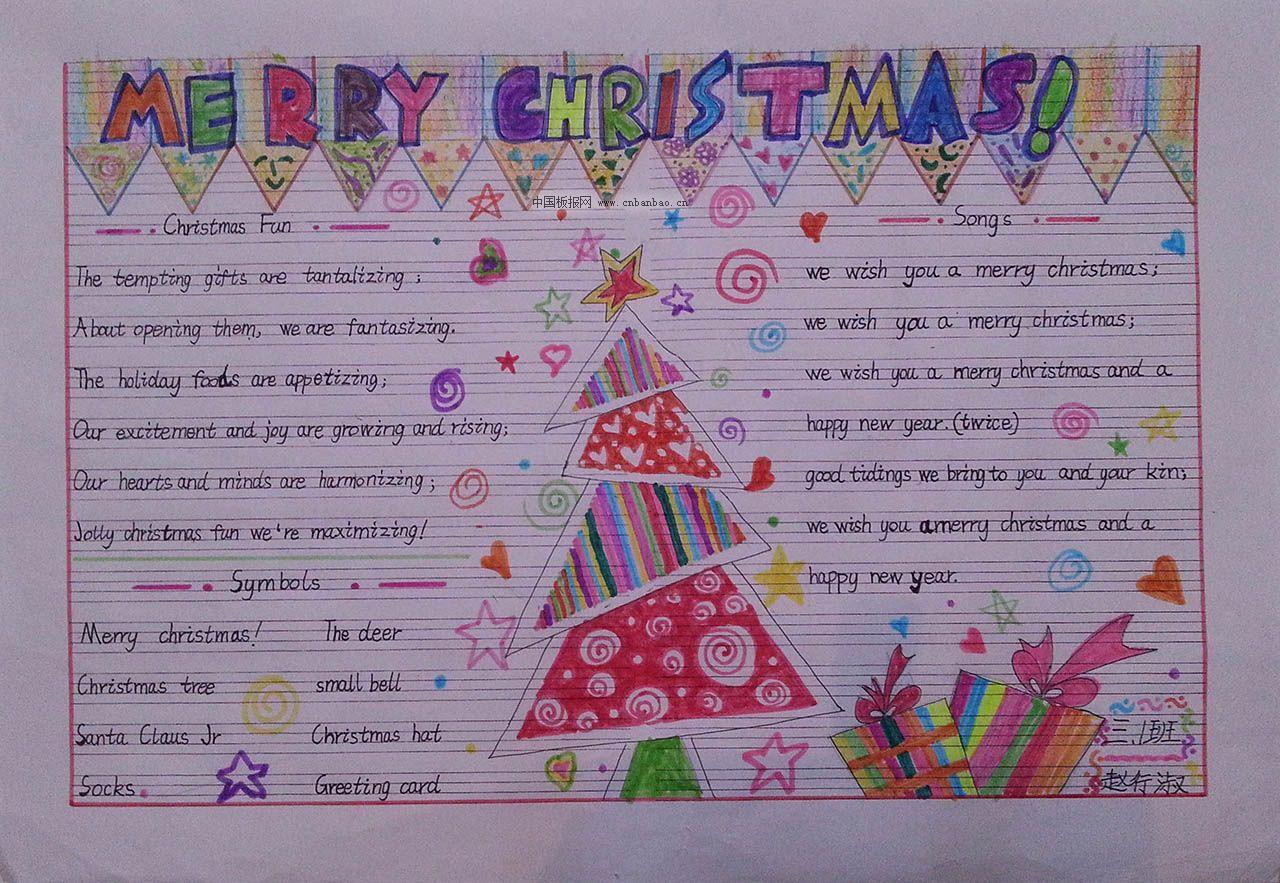 MERRY CHRISTMAS!
中国板报网 www.cnbanbao.cn
Christmas Fun
The tempting gifts are tantalizing ;
About opening them, we are fantasizing.
The holiday foods are appetizing;
Our excitement and joy are growing and rising;
Our hearts and minds are harmonizing ;
Jolly christmas fun we're maximizing!
Symbols
Merry christmas! The deer
Christmas tree small bell
Santa Claus Jr Christmas hat
Socks Greeting card
Songs
we wish you a merry christmas;
we wish you a merry christmas;
we wish you a merry christmas and a
happy new year.(twice)
good tidings we bring to you and your kin;
we wish you a merry christmas and a
happy new year.
三.1班
赵行淑